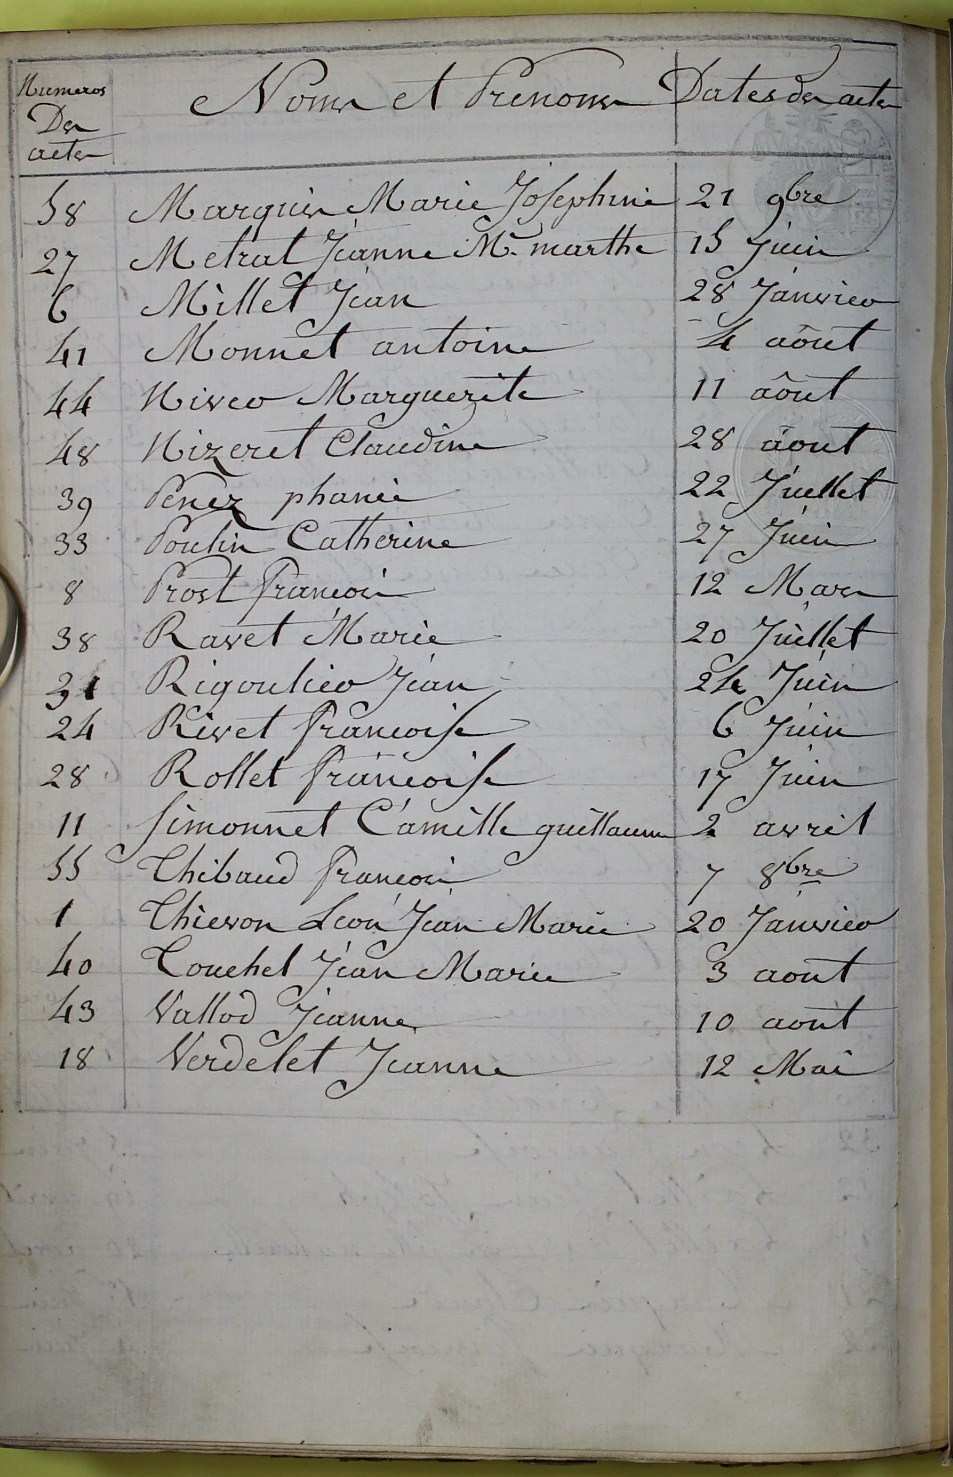 Numeros Des actes Noms et Prenoms Dates des actes
58 Marquis Marie Josephine 21 9bre
27 Metrat Jeanne Me marthe 15 Juin
6 Millet Jean 28 Janvier
41 Monnet antoine 4 août
44 Niver Marguerite 11 août
48 Nizeret Claudine 28 août
39 Penez phanie 22 Juillet
33 Poulin Catherine 27 Juin
8 Prost francois 12 Mars
38 Ravet Marie 20 Juillet
31 Rigoulier Jean 24 Juin
24 Rivet francoise 6 Juin
28 Rollet francoise 17 Juin
11 Simonnet Camille guillaume 2 avril
55 Thibaud francois 7 8bre
1 Thievon Leon Jean Marie 20 Janvier
40 Touchet Jean Marie 3 aout
43 Vallod Jeanne 10 aout
18 Verdelet Jeanne 12 Mai